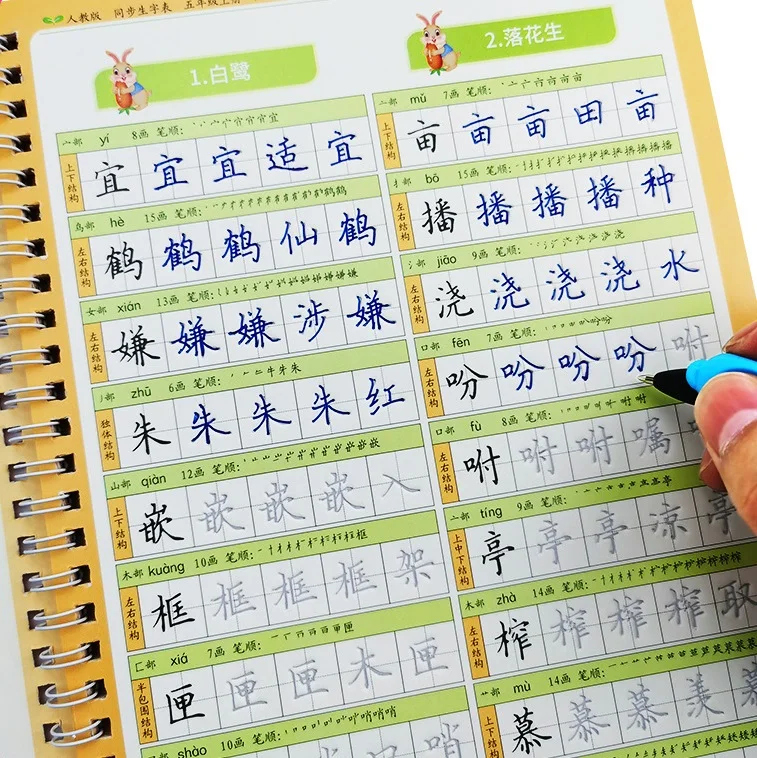 人教版 同步生字表 五年级上册
1.白鹭
宀部 yí 8画 笔顺:
上下结构
宜 宜 宜 适 宜
鸟部 hè 15画 笔顺:
左右结构
鹤 鹤 鹤 仙 鹤
女部 xián 13画 笔顺:
左右结构
嫌 嫌 嫌 涉 嫌
丿部 zhū 6画 笔顺:
独体结构
朱 朱 朱 朱 红
山部 qiàn 12画 笔顺:
上下结构
嵌 嵌 嵌 嵌 入
木部 kuàng 10画 笔顺:
左右结构
框 框 框 框 架
匚部 xiá 7画 笔顺:
半包围结构
匣 匣 匣 木 匣
shào 10画 笔顺:
哨
2.落花生
亠部 mǔ 7画 笔顺:
上下结构
亩 亩 亩 田 亩
扌部 bō 15画 笔顺:
左右结构
播 播 播 播 种
氵部 jiāo 9画 笔顺:
左右结构
浇 浇 浇 浇 水
口部 fēn 7画 笔顺:
左右结构
吩 吩 吩 吩 咐
口部 fù 8画 笔顺:
左右结构
咐 咐 咐 嘱
亠部 tíng 9画 笔顺:
上中下结构
亭 亭 亭 凉 亭
木部 zhà 14画 笔顺:
左右结构
榨 榨 榨 榨 取
艹部 mù 14画 笔顺:
上下结构
慕 慕 慕 羡 慕